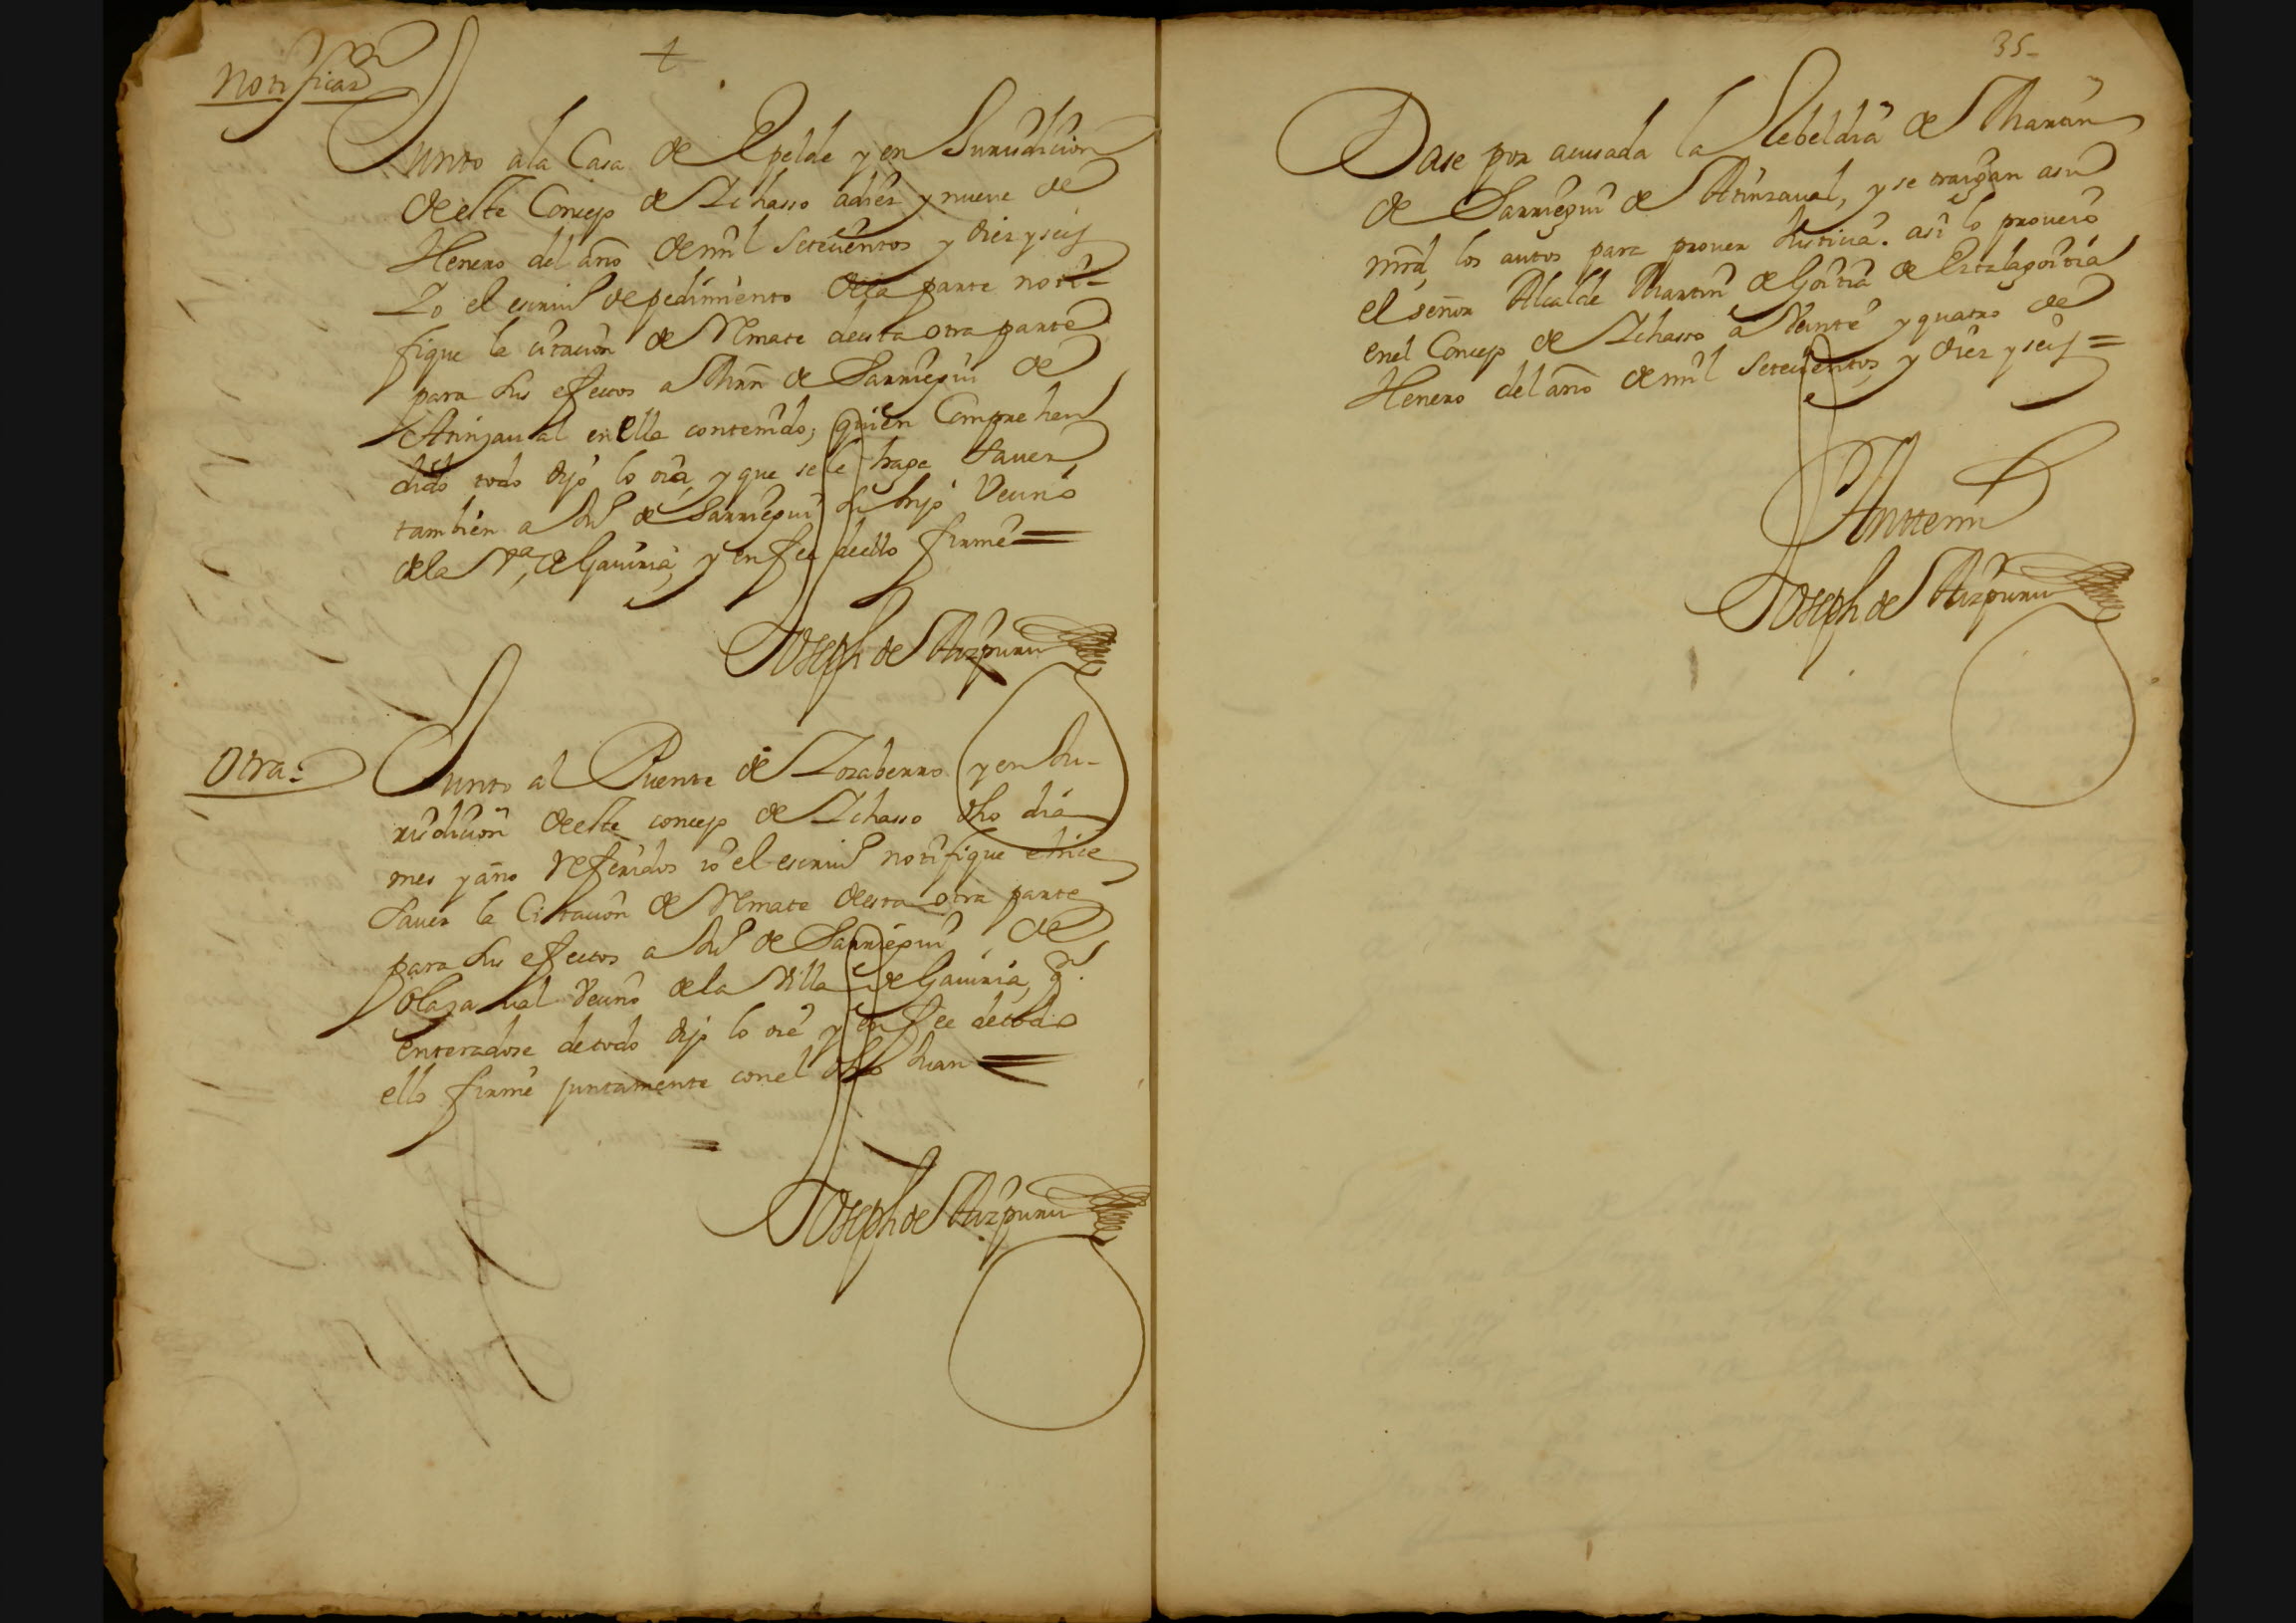 Notificaon
Junto a la Casa de Epelde y en Jurisdicion
de este Concejo de Ichasso a diez y nueve de
Henero del año de mil setecientos y diez y seis
Io el escriuº de pedimiento de la parte noti-
fique la citacion de Remate de esta otra parte
para sus efectos a Mrn de Sarriegui de
Arinzaual en ella contenido; quien Comprehen
dido todo dijo lo oia, y que se le haga sauer
tambien a Juº de Sarriegui su hijo Vecino
de la Vª, de Gauiria, y en fee de ello firmé =
Joseph de Aizpuru
Otra:
Junto al Puente de Lozaberro y en Ju-
risdicion de este concejo de Ichasso dho dia
mes y año Referidos io el escriuº notifique e hice
sauer la Citacion de Remate de esta otra parte
para sus efectos a Juº de Sarriegui, de
Olazaual Vecino de la Villa de Gauiria, q.
enteradose de todo dijo lo oie y en fee de todo
ello firmé juntamente con el dho Juan =
=
Joseph de Aizpuru
35-
Dase por acusada la Rebeldia de Martin
de Sarriegui de Arinzaual, y se traigan a su
mrd los autos para prouer Justicia. asi lo proueio
el señor Alcalde Martin de Goitia de Errelagoitia
en el Concejo de Ichasso a Veinte y quatro de
Henero del año de mil setecientos y diez y seis =
Antemi
Joseph de Aizpuru